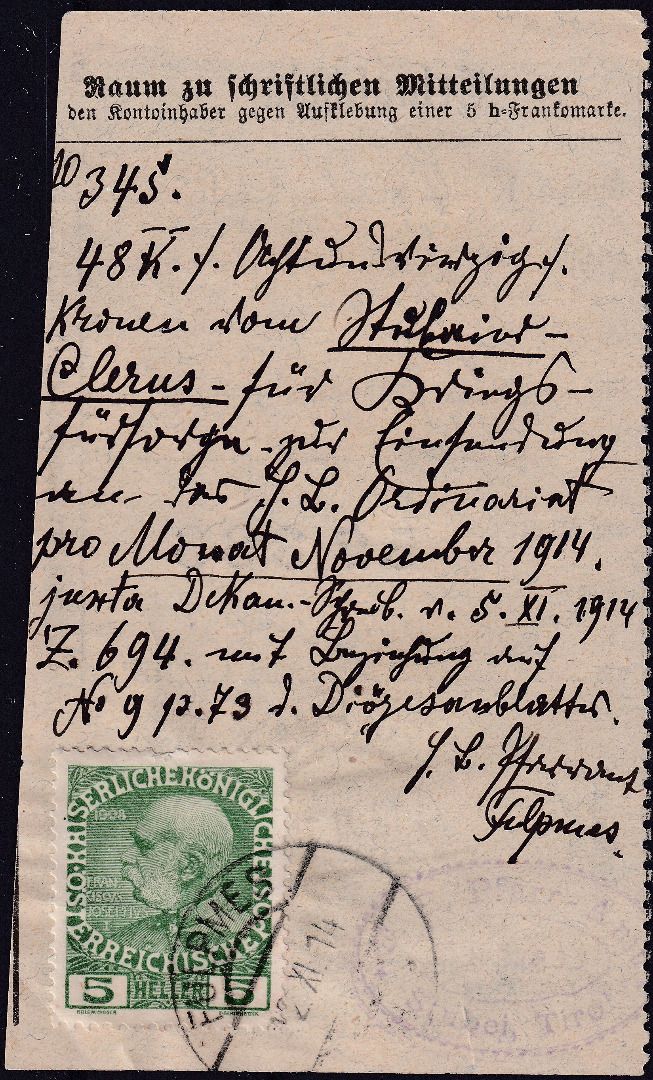 Raum zu schriftlichen Mitteilungen
den Kontoinhaber gegen Aufklebung einer 5 h-Frankomarke.
No 345.
48 K. /. Achtundvierzig /.
Kronen vom Stubaier-
Clerus - für Kriegs-
fürsorge zur Einsendung
an das f. b. Ordinariat
pro Monat November 1914.
juxta Dekan.-Schreib. v. 5. XI. 1914
Z. 694. mit Beziehung auf
No 9 p. 73 d. Diözesanblattes.
f. b. Pfarramt
Fulpmes.
KAISERLICHE KÖNIGLICHE
ÖSTERREICHISCHE POST
1908
FRANZ
JOSEF I
5 HELLER 5
FULPMES
14
Tirol